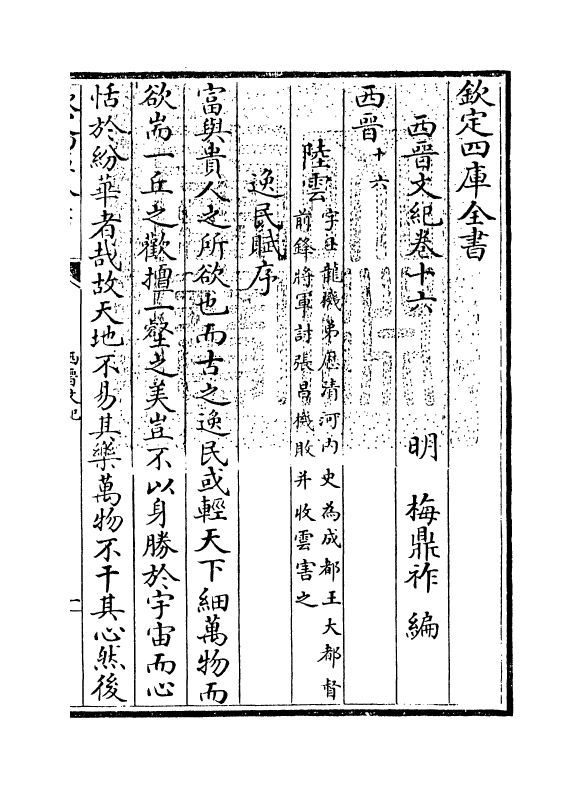 欽定四庫全書
西晉文紀卷十六
明 梅鼎祚 編
西晉十六
陸雲字士龍機弟歴清河内史為成都王大都督
前鋒將軍討張昌機敗并收雲害之
逸民賦序
富與貴人之所欲也而古之逸民或輕天下細萬物而
欲耑一丘之歡擅一壑之美豈不以身勝於宇宙而心
恬於紛華者哉故天地不易其樂萬物不干其心然後
西晉文紀
一